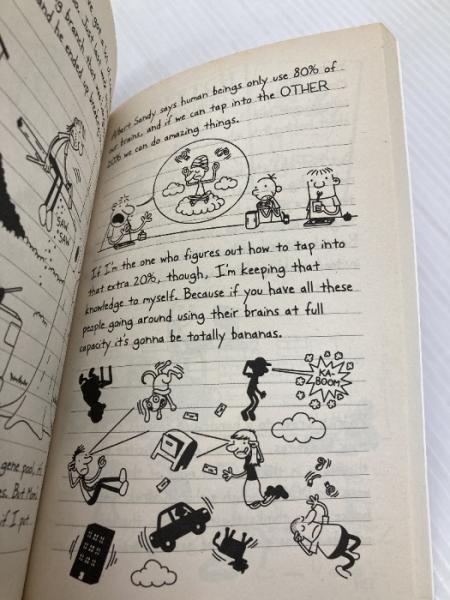 SAW
SAW
gene pool, it
es. But Mom
if I put
Albert Sandy says human beings only use 80% of
our brains, and if we can tap into the OTHER
20% we can do amazing things.
If I'm the one who figures out how to tap into
that extra 20%, though, I'm keeping that
knowledge to myself. Because if you have all these
people going around using their brains at full
capacity it's gonna be totally bananas.
KA-
BOOM